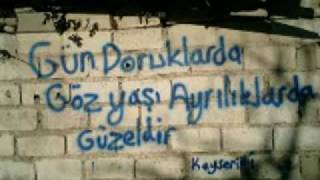 Gün Doruklarda
Göz yaşı Ayrılıklarda
Güzeldir